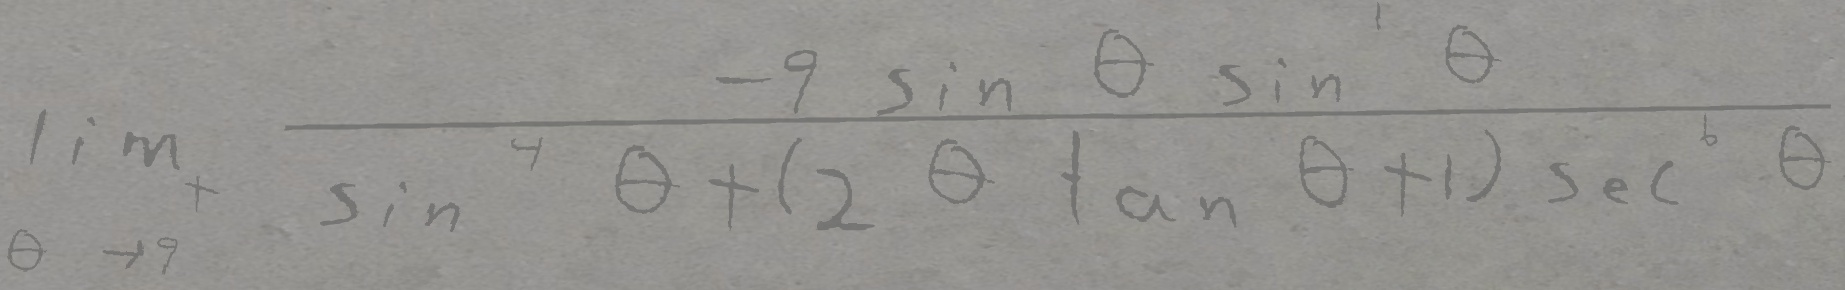 \lim_{\theta \to 9^+} \frac{-9 \sin \theta \sin^1 \theta}{\sin^4 \theta + (2 \theta \tan \theta + 1) \sec^6 \theta}